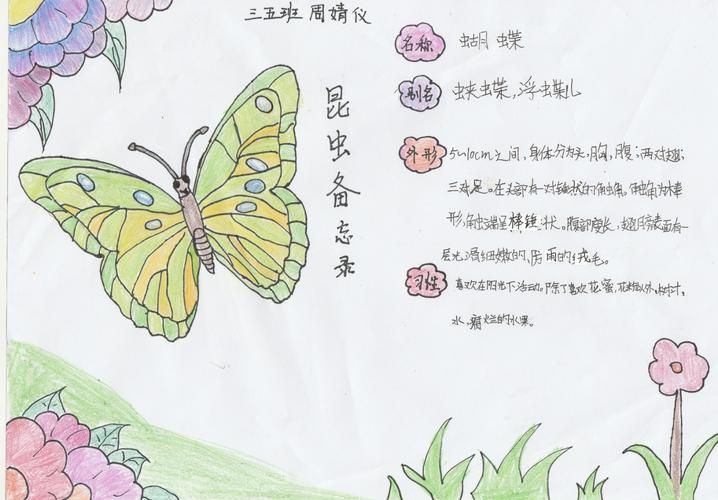 三五班 周婧仪
昆虫备忘录
名称 蝴蝶
别名 蛱蝶,浮蝶儿
外形 5~10cm之间,身体分为头,胸,腹;两对翅;
三对足。在头部有一对锤状的触角。触角为棒
形,触角端呈棒锤状。腹部瘦长,翅膀表面有一
层光滑细嫩的,防雨的绒毛。
习性 喜欢在阳光下活动。除了喜欢花蜜,花粉以外,树汁,
水,腐烂的水果。